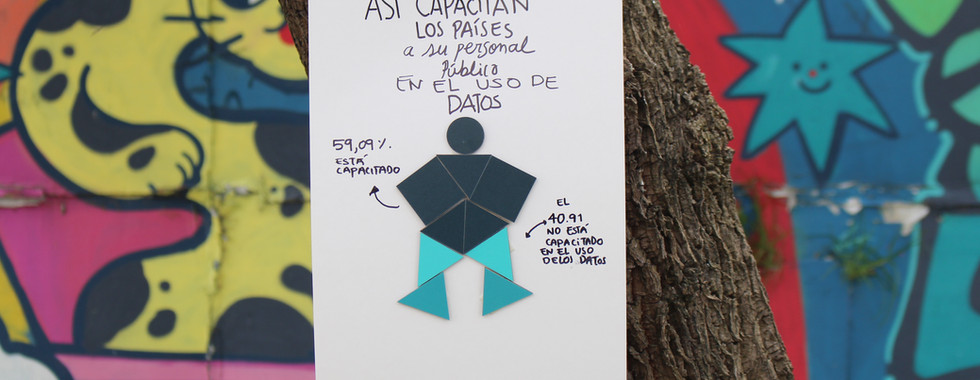 ASÍ CAPACITAN
LOS PAÍSES
a su personal
Público
EN EL USO DE
DATOS
59,09%.
ESTÁ
CAPACITADO
EL
40.91
NO ESTÁ
CAPACITADO
EN EL USO
DE LOS DATOS